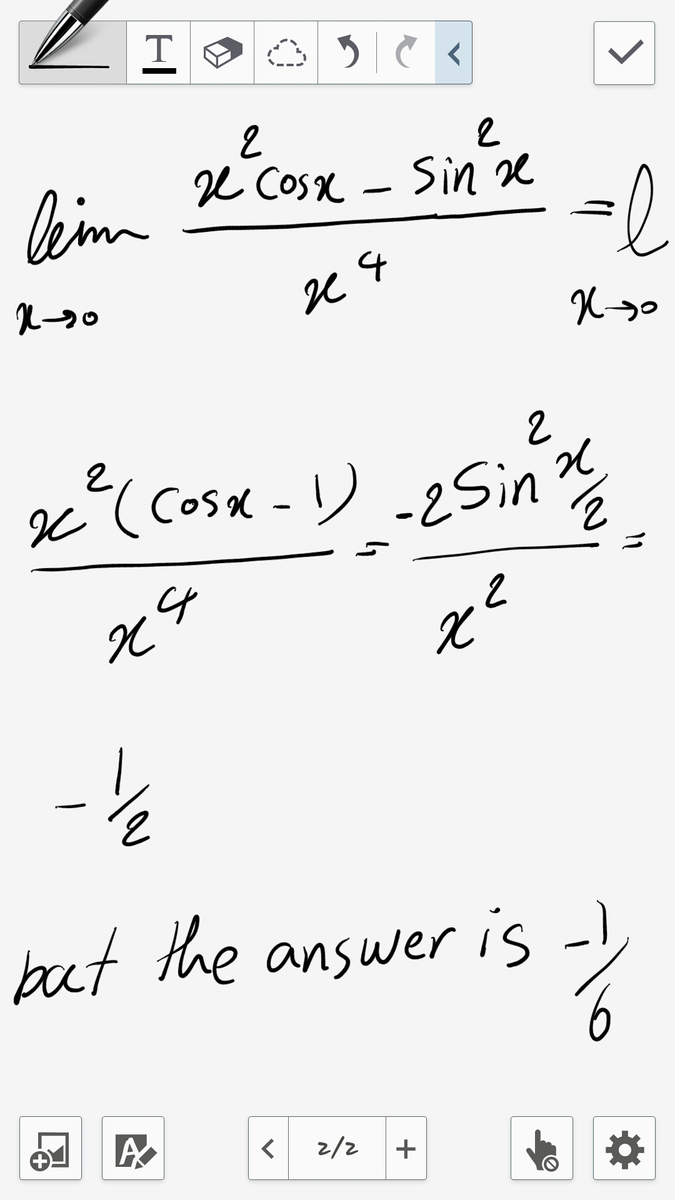 T
lim x→0 x² cosx - sin²x / x⁴ = l x→0
x²(cosx - 1) / x⁴ = -2 sin² x/2 / x² =
- 1/2
but the answer is -1/6
A
2/2